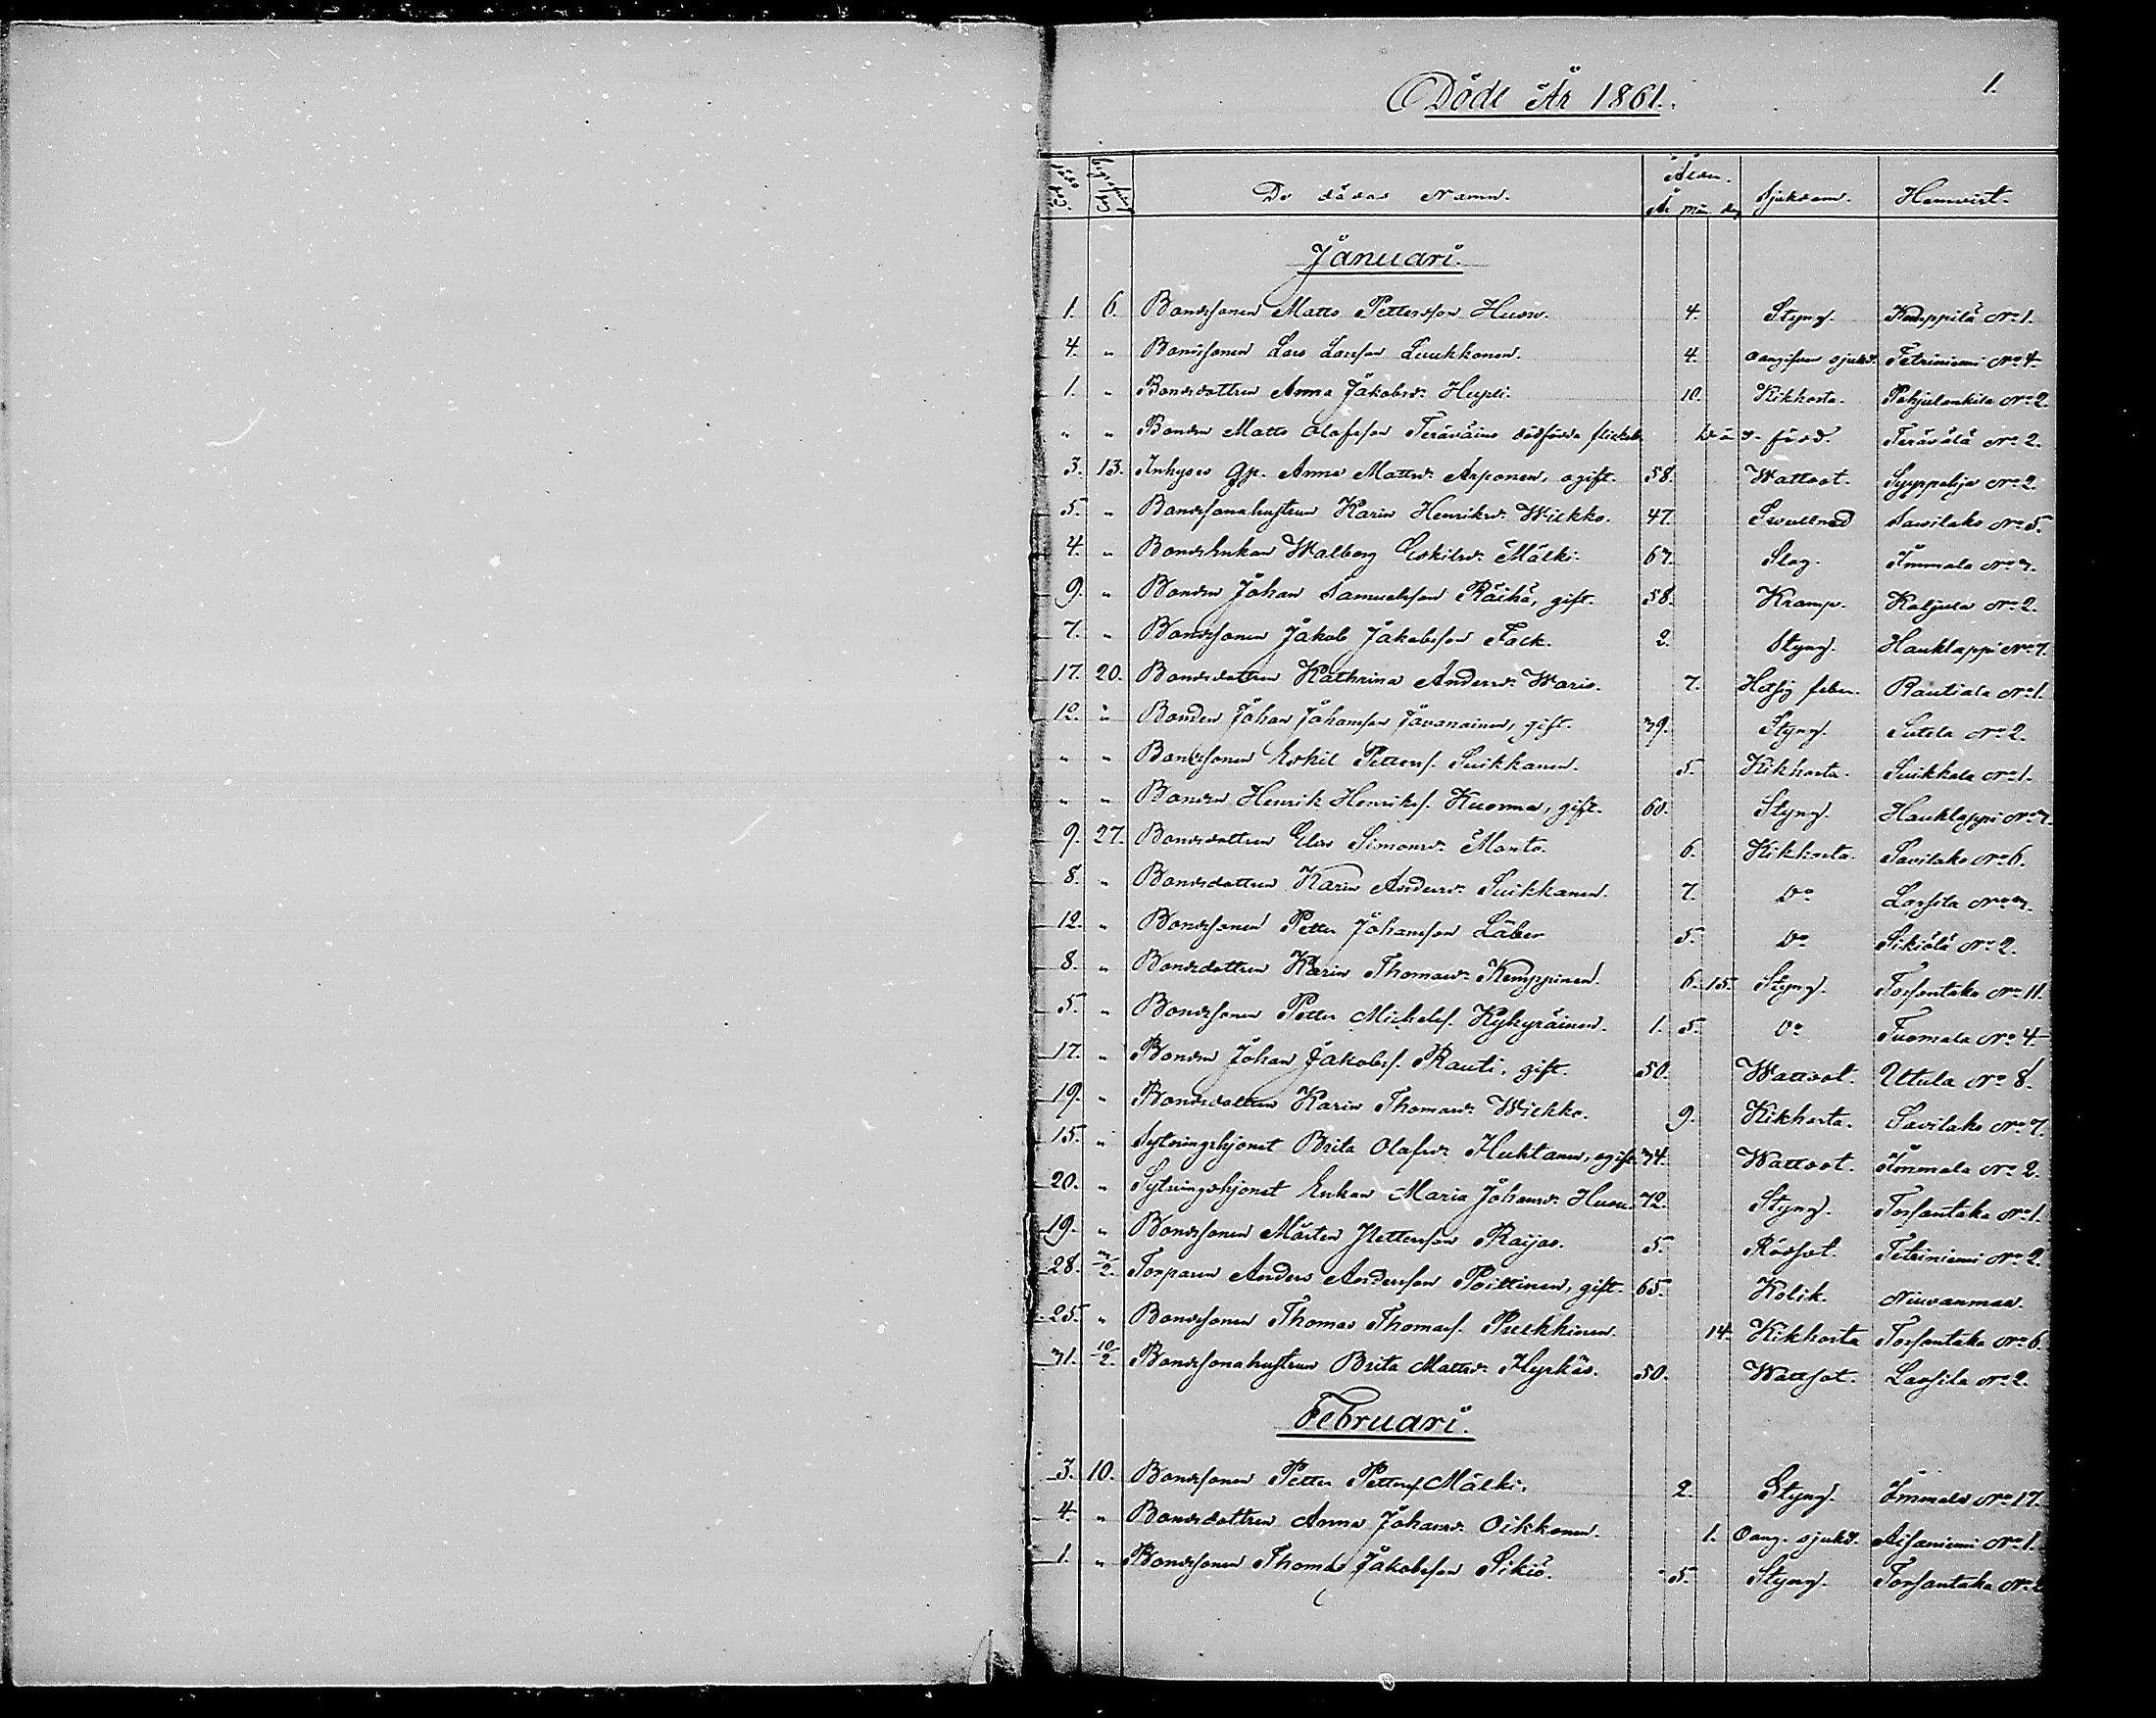 1.
Döde År 1861.
De dödas Namn. Ålder. Sjukdom. Hemvist.
År mån dag
Januari.
1. 6. Bondesonen Matts Pettersson Huuse. 4. Styng. Kemppilä No 1.
4. " Bondesonen Lars Larsson Luukkonen. 4. oangifven sjukd. Tetriniemi No 4.
1. " Bondedottren Anna Jakobsdr Hupli. 10. Kikhosta. Pohjalankila No 2.
" " Bonden Matts Olofsson Teräväins dödfödda flickeb. Död född. Terävälä No 2.
3. 13. Inhyses Qp. Anna Mattsdr Arponen, ogift. 58. Wattsot. Syyspohja No 2.
5. " Bondesonahustrun Karin Henriksdr Wilkko. 47. Svullnad Savilaks No 5.
4. " Bondeenkan Walborg Eskilsdr Mälki. 67. Slag. Immala No 3.
9. " Bonden Johan Samuelsson Räihä, gift. 58. Kramp. Kaljula No 2.
7. " Bondesonen Jakob Jakobsson Fack. 2. Styng. Hauklappi No 7.
17. 20. Bondedottren Kathrina Andersdr Waris. 7. Hetsig feber. Rautiala No 1.
12. " Bonden Johan Johansson Javanainen, gift. 39. Styng. Sutela No 2.
" " Bondesonen Eskil Petterss. Suikkanen. 5. Kikhosta. Suikkala No 1.
" " Bonden Henrik Henrikss. Kuorma, gift. 60. Styng. Hauklappi No 7.
9. 27. Bondedottren Elin Simonsdr Monto. 6. Kikhosta. Savilaks No 6.
8. " Bondedottren Karin Andersdr Suikkanen. 7. Do Lassila No 3.
12. " Bondesonen Petter Johansson Läber 5. Do Sikiölä No 2.
8. " Bondedottren Karin Thomasdr Kemppinen. 6. 15. Styng. Torsantaka No 11.
5. " Bondesonen Petter Michelss. Kykyräinen. 1. 5. Do Tuomala No 4
17. " Bonden Johan Jakobss. Rauti, gift. 50. Wattsot. Utula No 8.
19. " Bondedottren Karin Thomasdr Wilkko. 9. Kikhosta. Savilaks No 7.
15. " Sytningshjonet Brita Olofsdr Huhtanen, ogift. 74. Wattsot. Immala No 2.
20. " Sytningshjonet Enkan Maria Johansdr Husu. 72. Styng. Torsantaka No 1.
19. " Bondesonen Mårten Pettersson Raijas. 5. Rödsot. Tetriniemi No 2.
28. 3/2. Torparen Anders Andersson Poittinen, gift. 65. Kolik. Niuvanmaa.
25. " Bondesonen Thomas Thomass. Pulkkinen. 14. Kikhosta Torsantaka No 6.
31. 10/2. Bondesonahustrun Brita Mattsdr Hyrkäs. 50. Wattsot. Lassila No 2.
Februari.
3. 10. Bondesonen Petter Petterss. Mälki. 2. Styng. Immala No 17.
4. " Bondedottren Anna Johansdr Oikkonen. 1. Oang. sjukd. Aisaniemi No 1.
1. " Bondesonen Thomas Jakobsson Sikiö. 5. Styng. Torsantaka No 2